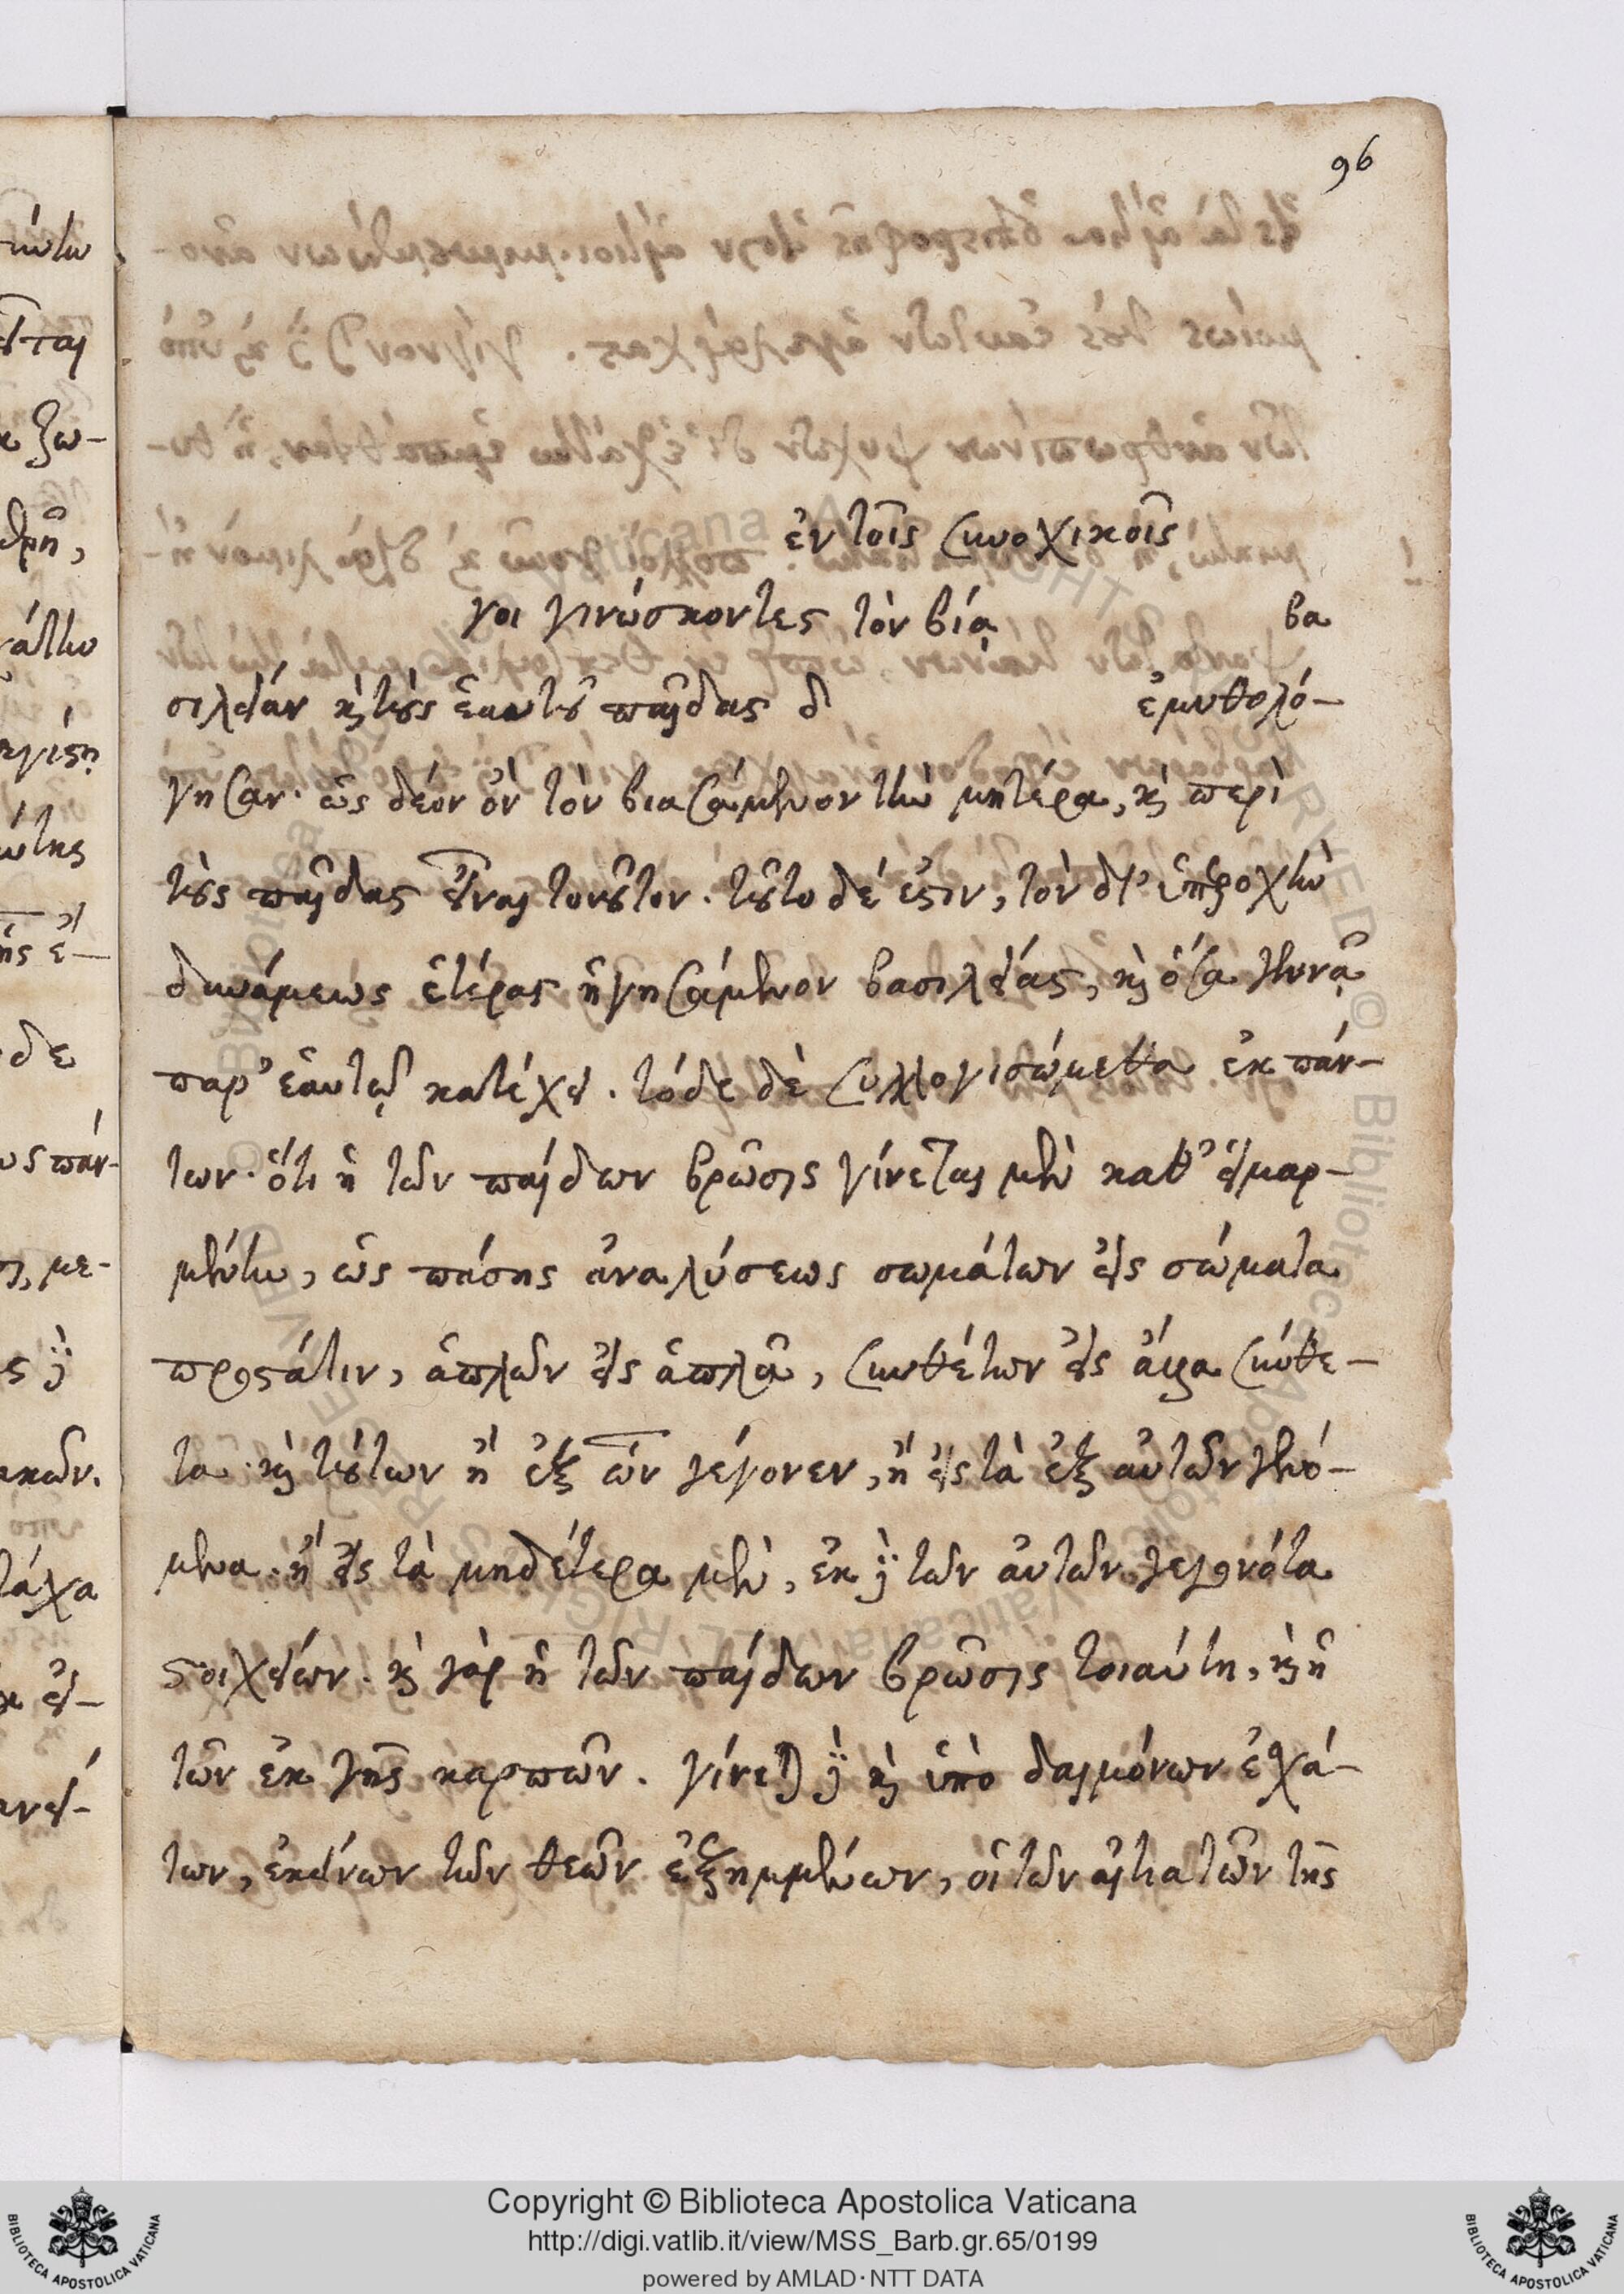 96
ἐν τοῖς συνοχικοῖς
γοι γινώσκοντες τὸν βία βα
σιλείαν καὶ τοὺς ἑαυτοῦ παῖδας δ ἐμυθολό-
γησαν· ὡς δέον ὂν τὸν βιασάμενον τὴν μητέρα, καὶ περὶ
τοὺς παῖδας εἶναι τοιοῦτον. τοῦτο δέ ἐστιν, τὸν δι' ὑπεροχὴν
δυνάμεως ἑτέρας ἡγησάμενον βασιλείας, καὶ ὅσα γεννᾷ
παρ' ἑαυτῷ κατέχει. τόδε δὲ συλλογισώμεθα ἐκ πάν-
των· ὅτι ἡ τῶν παίδων βρῶσις γίνεται μὲν καθ' εἱμαρ-
μένην, ὡς πάσης ἀναλύσεως σωμάτων εἰς σώματα
προστάτιν, ἁπλῶν εἰς ἁπλᾶ, συνθέτων εἰς ἄλλα σύνθε-
τα· καὶ τούτων ἢ ἐξ ὧν γέγονεν, ἢ εἰς τὰ ἐξ αὐτῶν γενό-
μενα· ἢ εἰς τὰ μηδέτερα μὲν, ἐκ δὲ τῶν αὐτῶν γεγονότα
στοιχείων. καὶ γὰρ ἡ τῶν παίδων βρῶσις τοιαύτη, καὶ ἡ
τῶν ἐκ γῆς καρπῶν. γίνεται δὲ καὶ ὑπὸ δαιμόνων ἐσχά-
των, ἐκείνων τῶν θεῶν ἐξημμένων, οἳ τῶν αἰτιατῶν τῆς
Copyright © Biblioteca Apostolica Vaticana
http://digi.vatlib.it/view/MSS_Barb.gr.65/0199
powered by AMLAD·NTT DATA
BIBLIOTECA APOSTOLICA VATICANA
BIBLIOTECA APOSTOLICA VATICANA